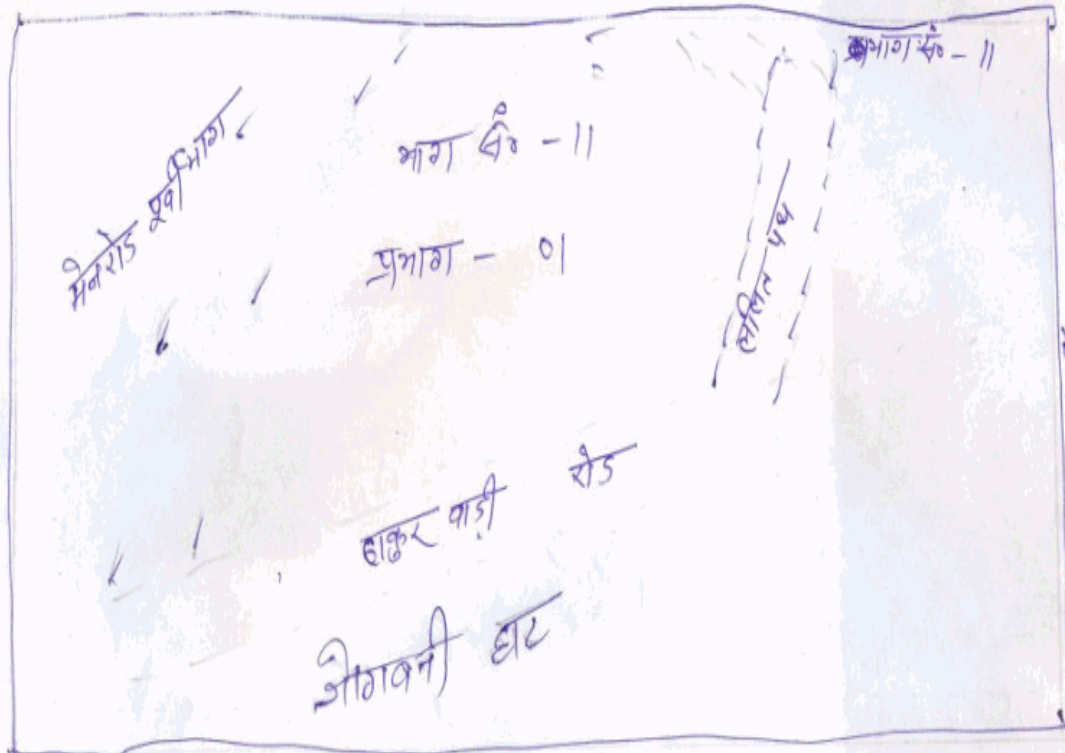 प्रभाग सं० - 11
मेन रोड पूर्वी भाग
भाग सं० - 11
प्रभाग - 01
ललित पथ
ठाकुर वाड़ी रोड
जोगवनी हाट